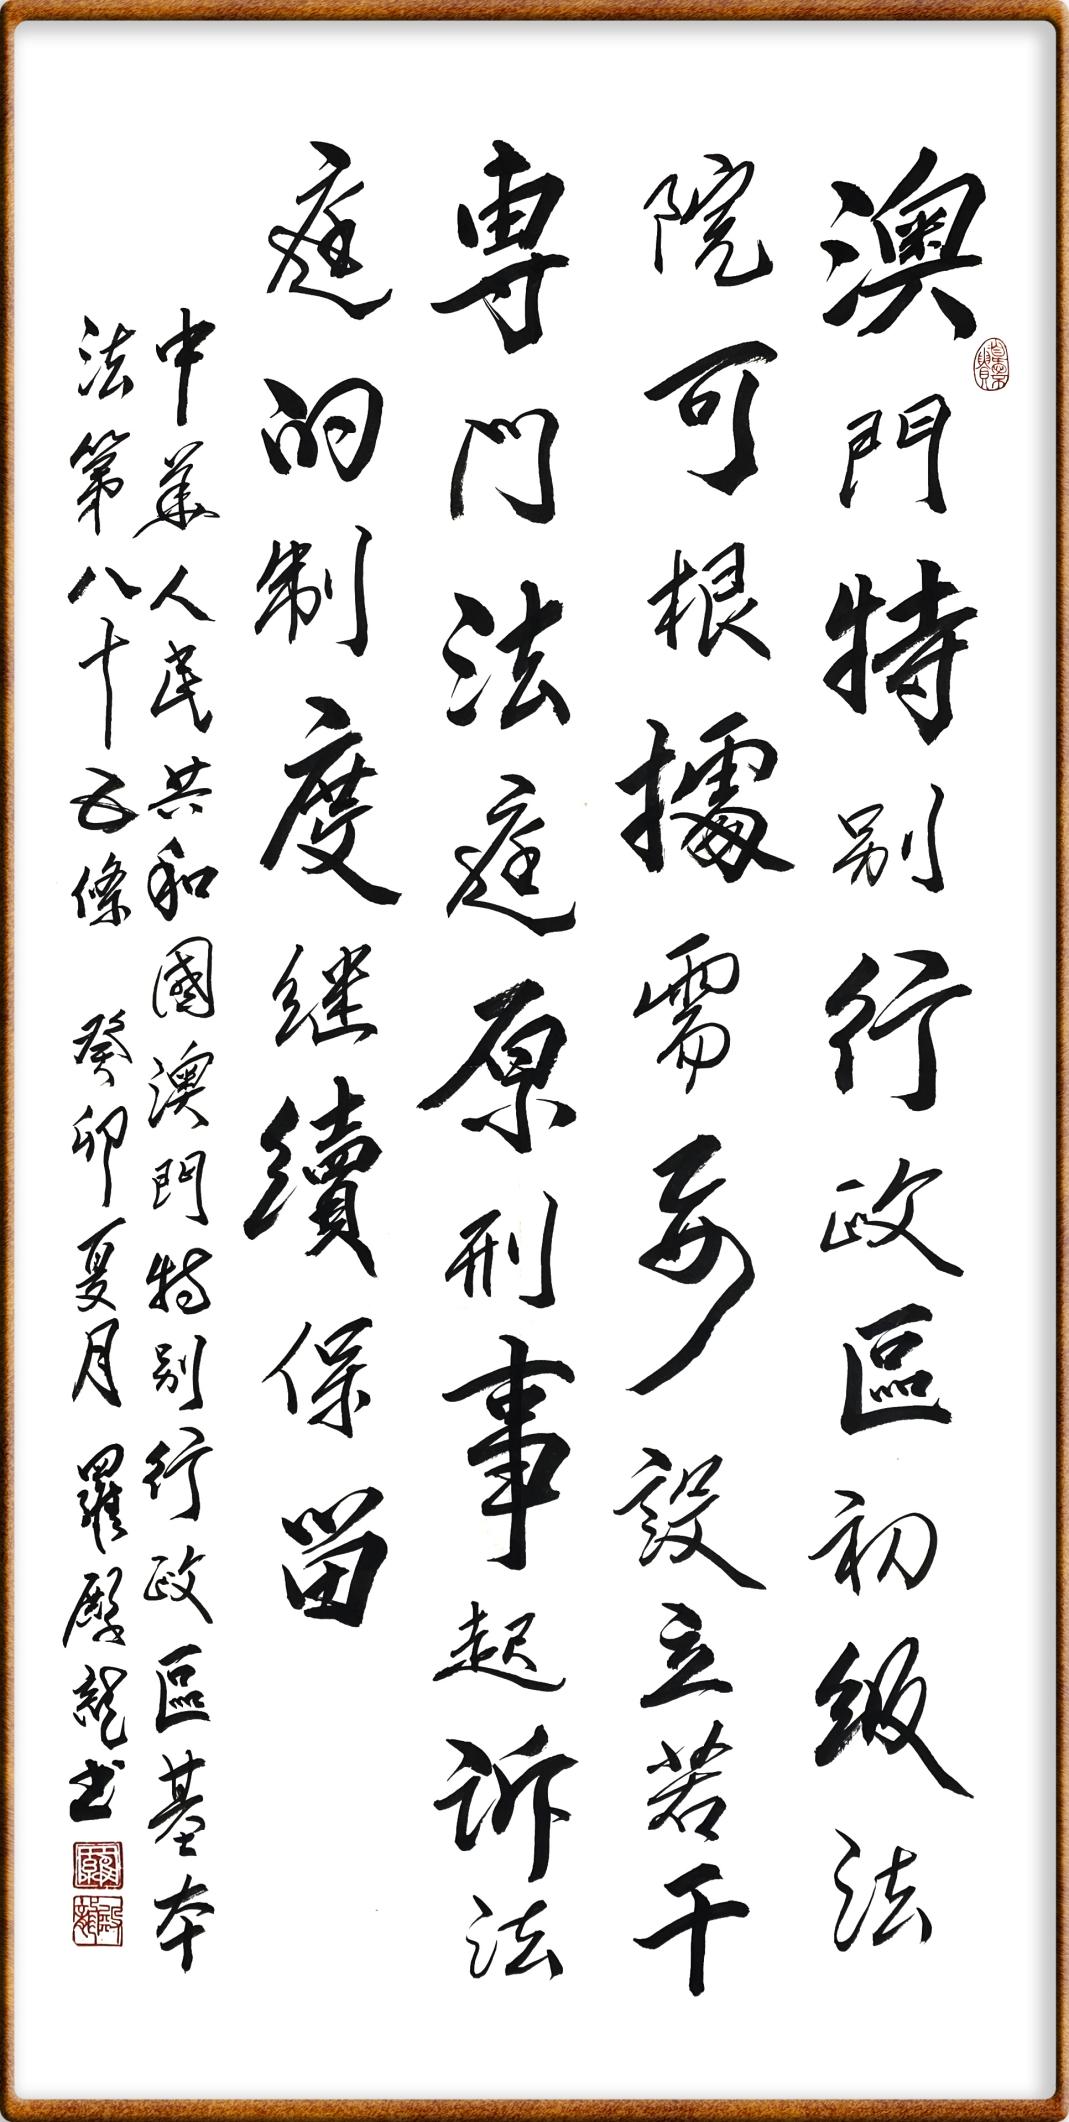 澳門特别行政區初級法
院可根據需要設立若干
專門法庭原刑事起訴法
庭的制度继續保留
中華人民共和國澳門特别行政區基本
法第八十五條 癸卯夏月 羅殿龍书